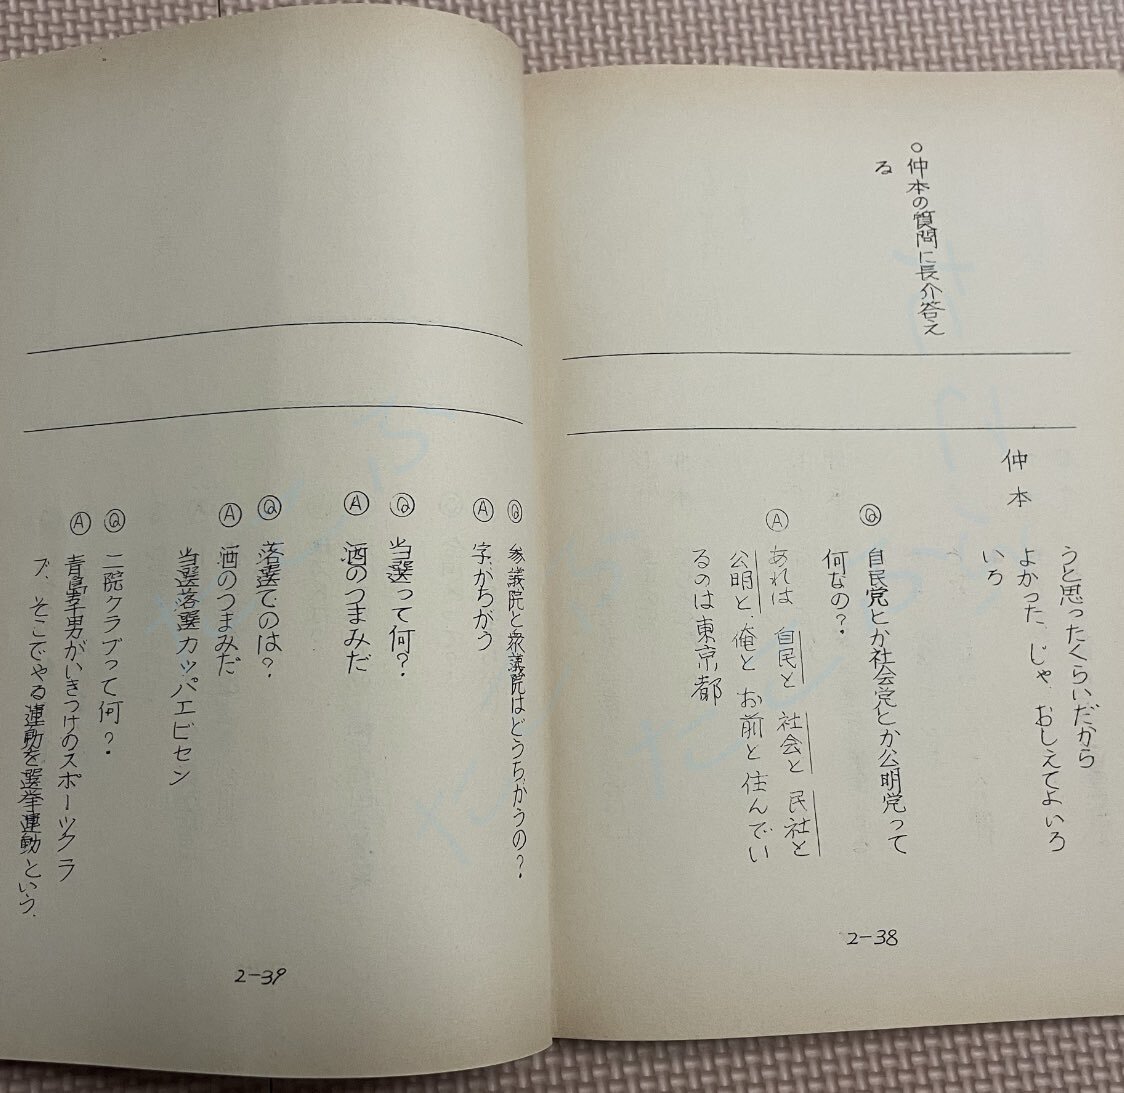 ○仲本の質問に長介答え
る
うと思ったくらいだから
よかった、じゃ、おしえてよいろ
いろ
仲本
Ⓠ 自民党とか社会党とか公明党って
何なの?
Ⓐ あれは 自民と 社会と 民社と
公明と 俺と お前と 住んでい
るのは東京都
2-38
Ⓠ 参議院と衆議院はどうちがうの?
Ⓐ 字がちがう
Ⓠ 当選って何?
Ⓐ 酒のつまみだ
Ⓠ 落選てのは?
Ⓐ 酒のつまみだ
当選落選カッパエビセン
Ⓠ 二院クラブって何?
Ⓐ 青島幸男がいきつけのスポーツクラ
ブ、そこでやる運動を選挙運動という、
2-39